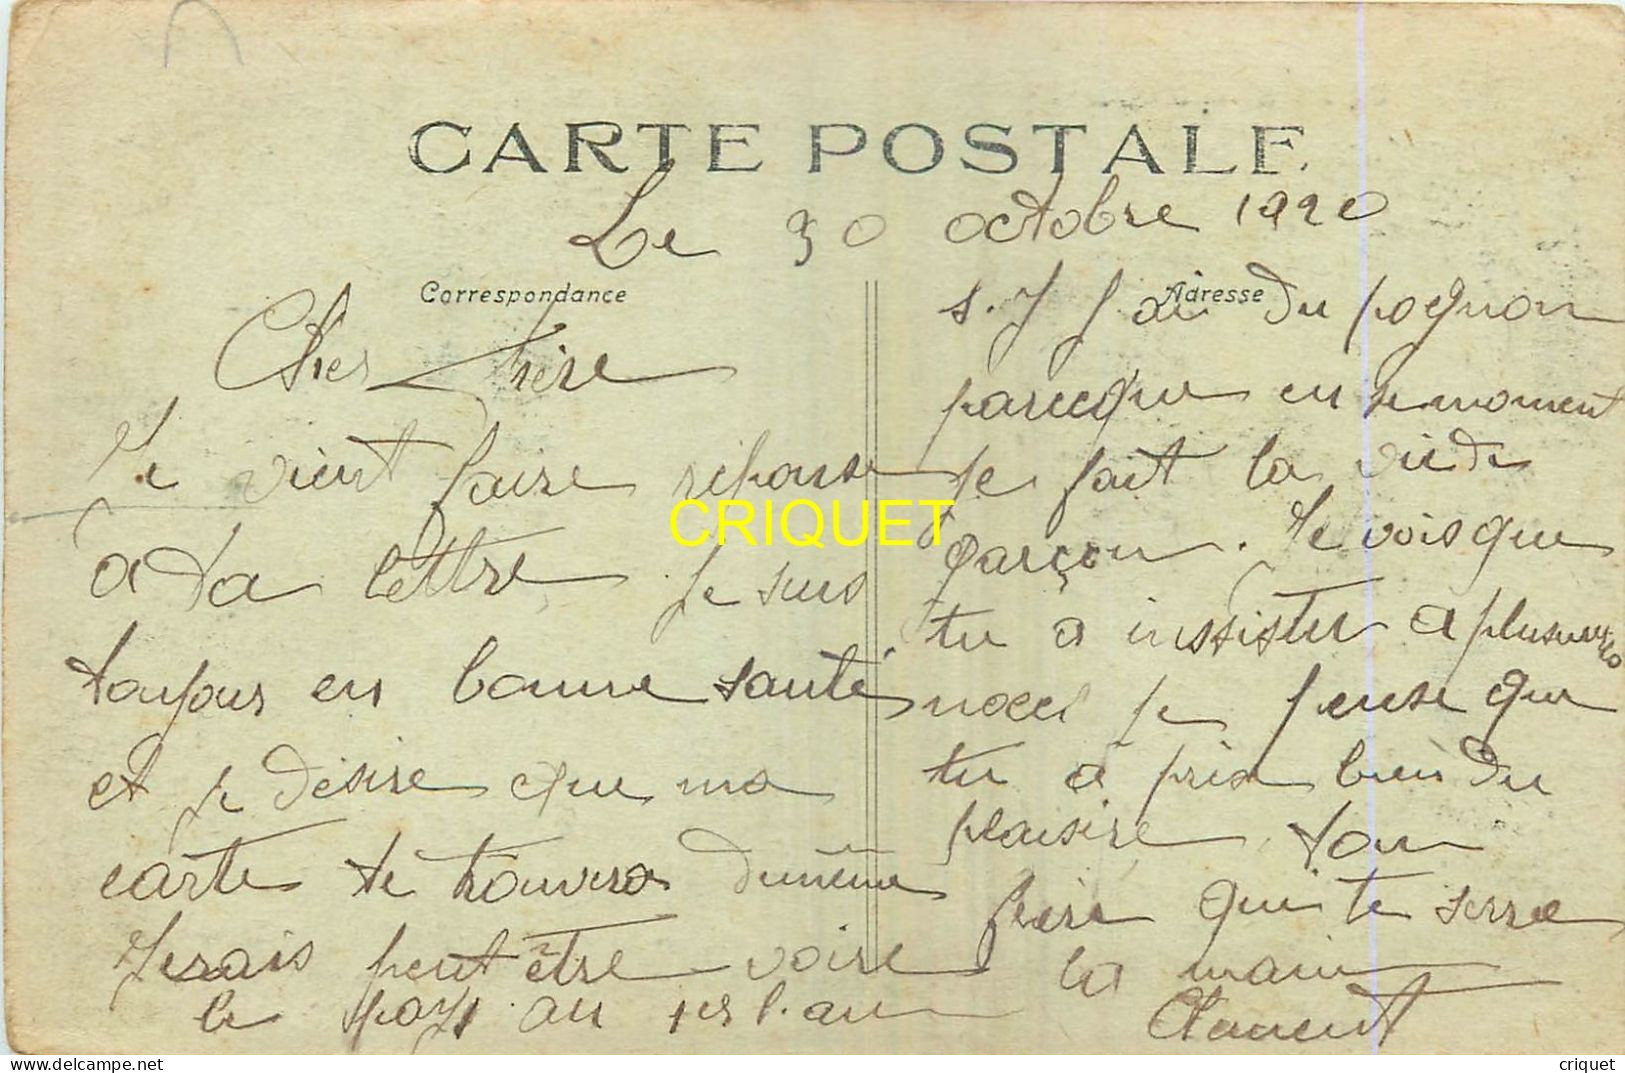 CARTE POSTALE
Le 30 octobre 1920
Correspondance
Cher frère
Je vient faire réponse
a ta lettre je suis
toujour en bonne santé
et je désire que ma
carte te trouvera dumême
Jerais peut être voire
le pays au 1er l.an
Adresse
s. J j ai du pognon
parceque en se moment
je fait la vie de
garçon. Je vois que
tu a insister a plusieurs
noces je pense que
tu a pris bien du
plaisire ton
frère qui te serre
la main
Clément
CRIQUET
criquet
delcampe.net